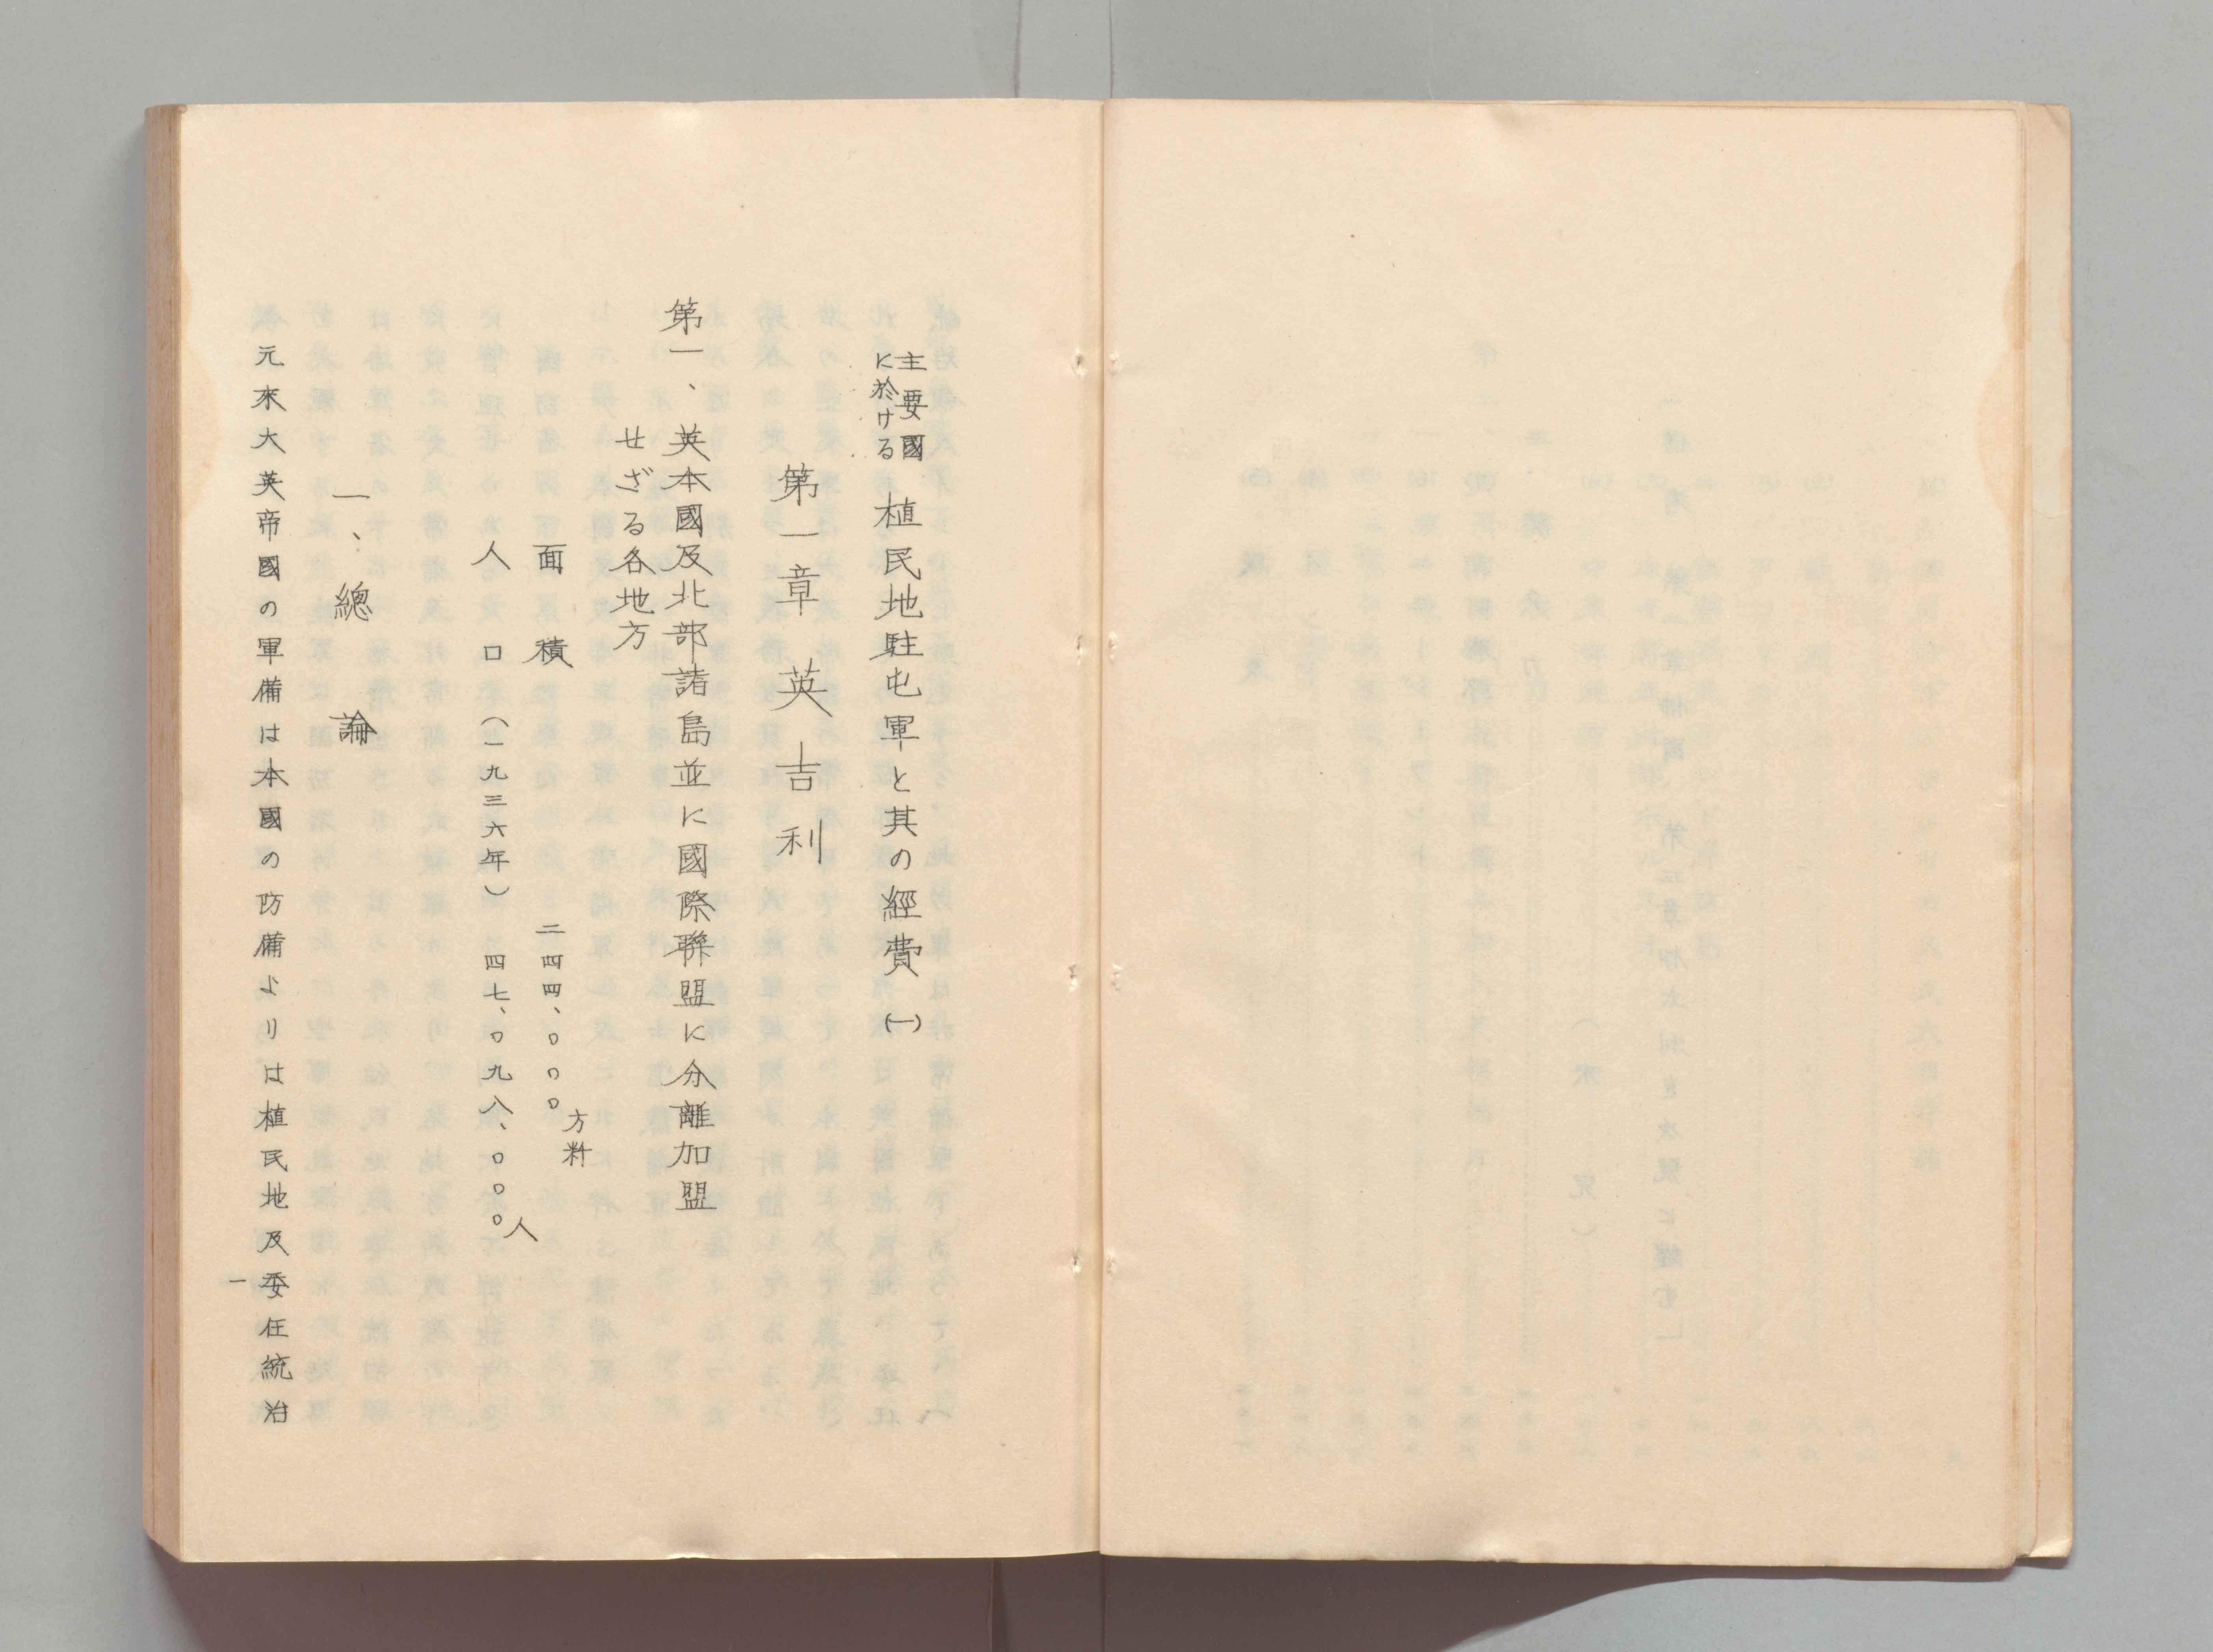 主要國
に於ける
植民地駐屯軍と其の經費(一)
第一章 英吉利
第一、英本國及北部諸島並に國際聯盟に分離加盟
せざる各地方
面積 二四四、〇〇〇方粁
人口(一九三六年) 四七、〇九八、〇〇〇人
一、總論
元來大英帝國の軍備は本國の防備よりは植民地及委任統治
一